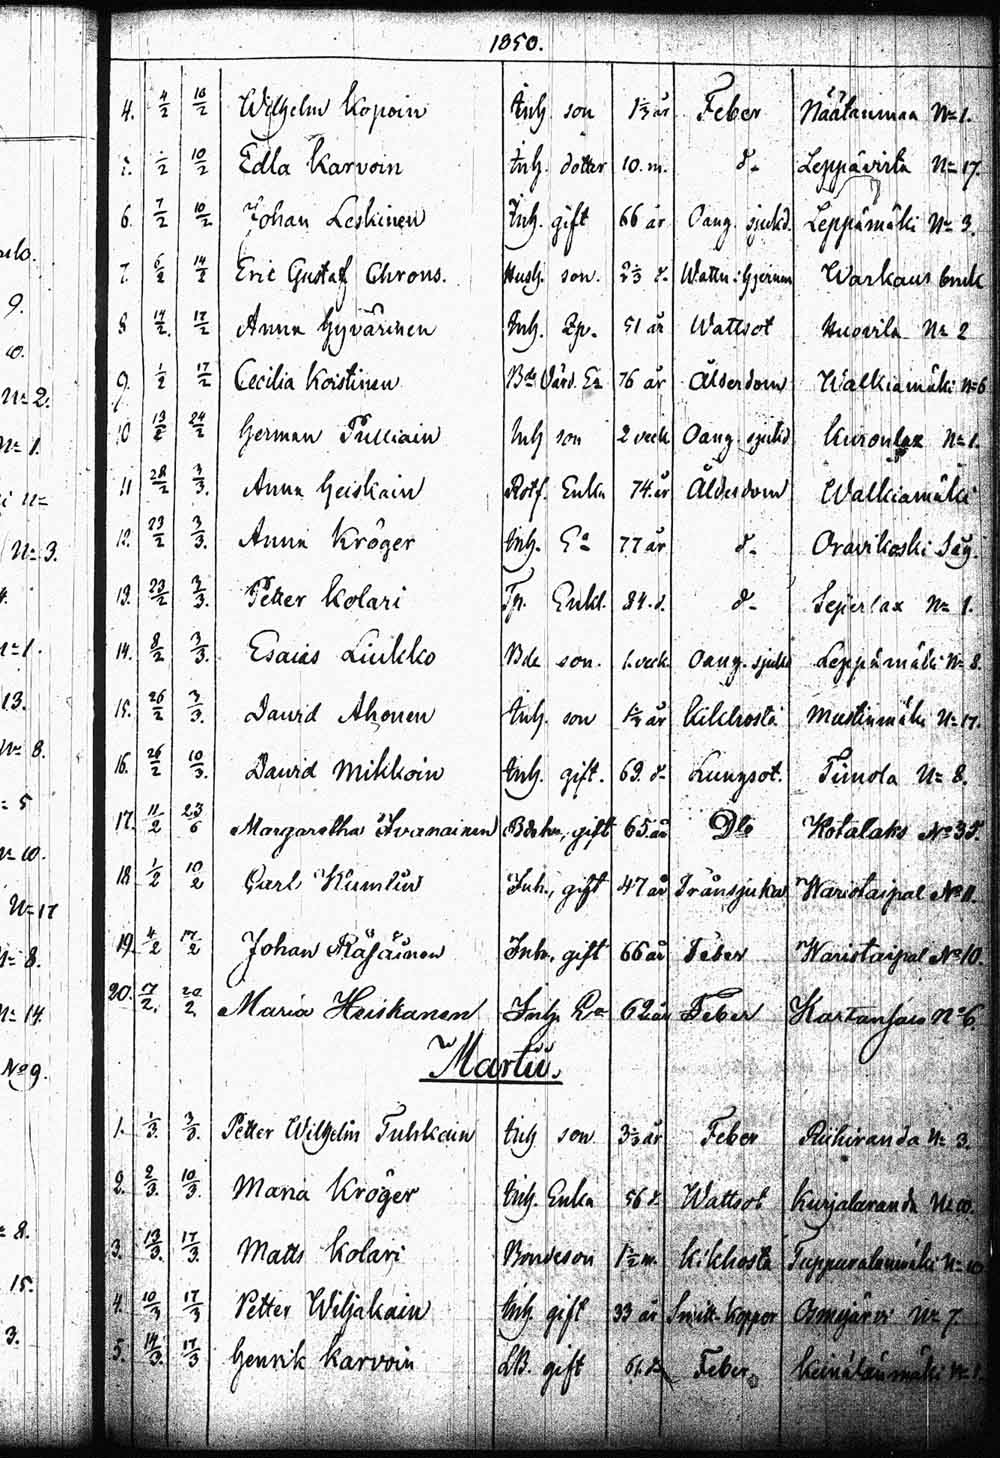 1850.
4. 4/2 10/2 Wilhelm Kopoin Inh. son 1 1/3 år Feber Näätänmaa No 1.
/2 10/2 Edla Karvoin Inh. dotter 10. m. d- Leppävirta No 17.
6. 7/2 10/2 Johan Leskinen Inh. gift 66 år Oang. sjukd. Leppämäki No 3.
7. 6/2 14/2 Eric Gustaf Chrons. Hush. son. 2 1/3 d. Wattu: Warkaus bruk
8 14/2 17/2 Anna Hyvärinen Inh. 51 år Wattsot Huovila No 2
9. 1/2 17/2 Cecilia Koistinen Bde Värd. Ea 76 år Ålderdom Walkiamäki No 6
10 13/2 24/2 Herman Pulliain Inh son 2 veck Oang. sjukd Kuronlax No 1.
11 28/2 3/3. Anna Heiskain Rotf. Enka 74. år Ålderdom Walkiamäki
12. 23/2 3/3. Anna Kröger Inh. Ea 77 år d- Oravikoski Såg.
13. 23/2 3/3. Petter Kolari Tp. Enkl. 84. d. d- Sejerlax No 1.
14. 8/2 3/3. Esaias Liukko Bde son. 1. veck Oang. sjukd Leppämäki No 8.
15. 26/2 3/3. David Ahonen Inh. son år Kikhosta Mustinmäki No 17.
16. 26/2 10/3. David Mikkoin Inh. gift. 69. d- Lungsot. Timola No 8.
17. 11/2 23/6 Margaretha Ivanainen gift 65 år Dto Kotalaks No 35.
18 1/2 10/2 Carl Kumlin Inh., gift 47 år Trånsjuka Waristaipal No 11.
19. 4/2 17/2 Johan Räsäinen Inh., gift 66 år Feber Waristaipal No 10.
20. 17/2. 20/2 Maria Heiskanen Inh. Ea 62 år Feber No 6.
Martii.
1. 1/3. 3/3. Petter Wilhelm Tuhkain Inh son 3 1/3 år Feber Riihiranda No 3.
2. 2/3. 10/3. Maria Kröger Inh. Enka 56 d. Wattsot Kurjalaranda No 10.
3. 13/3. 17/3. Matts Kolari Bondeson 1 1/2 m. Kikhosta Tuppuralanmäki No 10
4. 10/3 17/3 Petter Wiljakain Inh. gift 33 år Smitt-koppor Osmajärvi No 7.
5. 14/3. 17/3 Henrik Karvoin LB. gift 61. d. Feber. Keinälänmäki No 1.